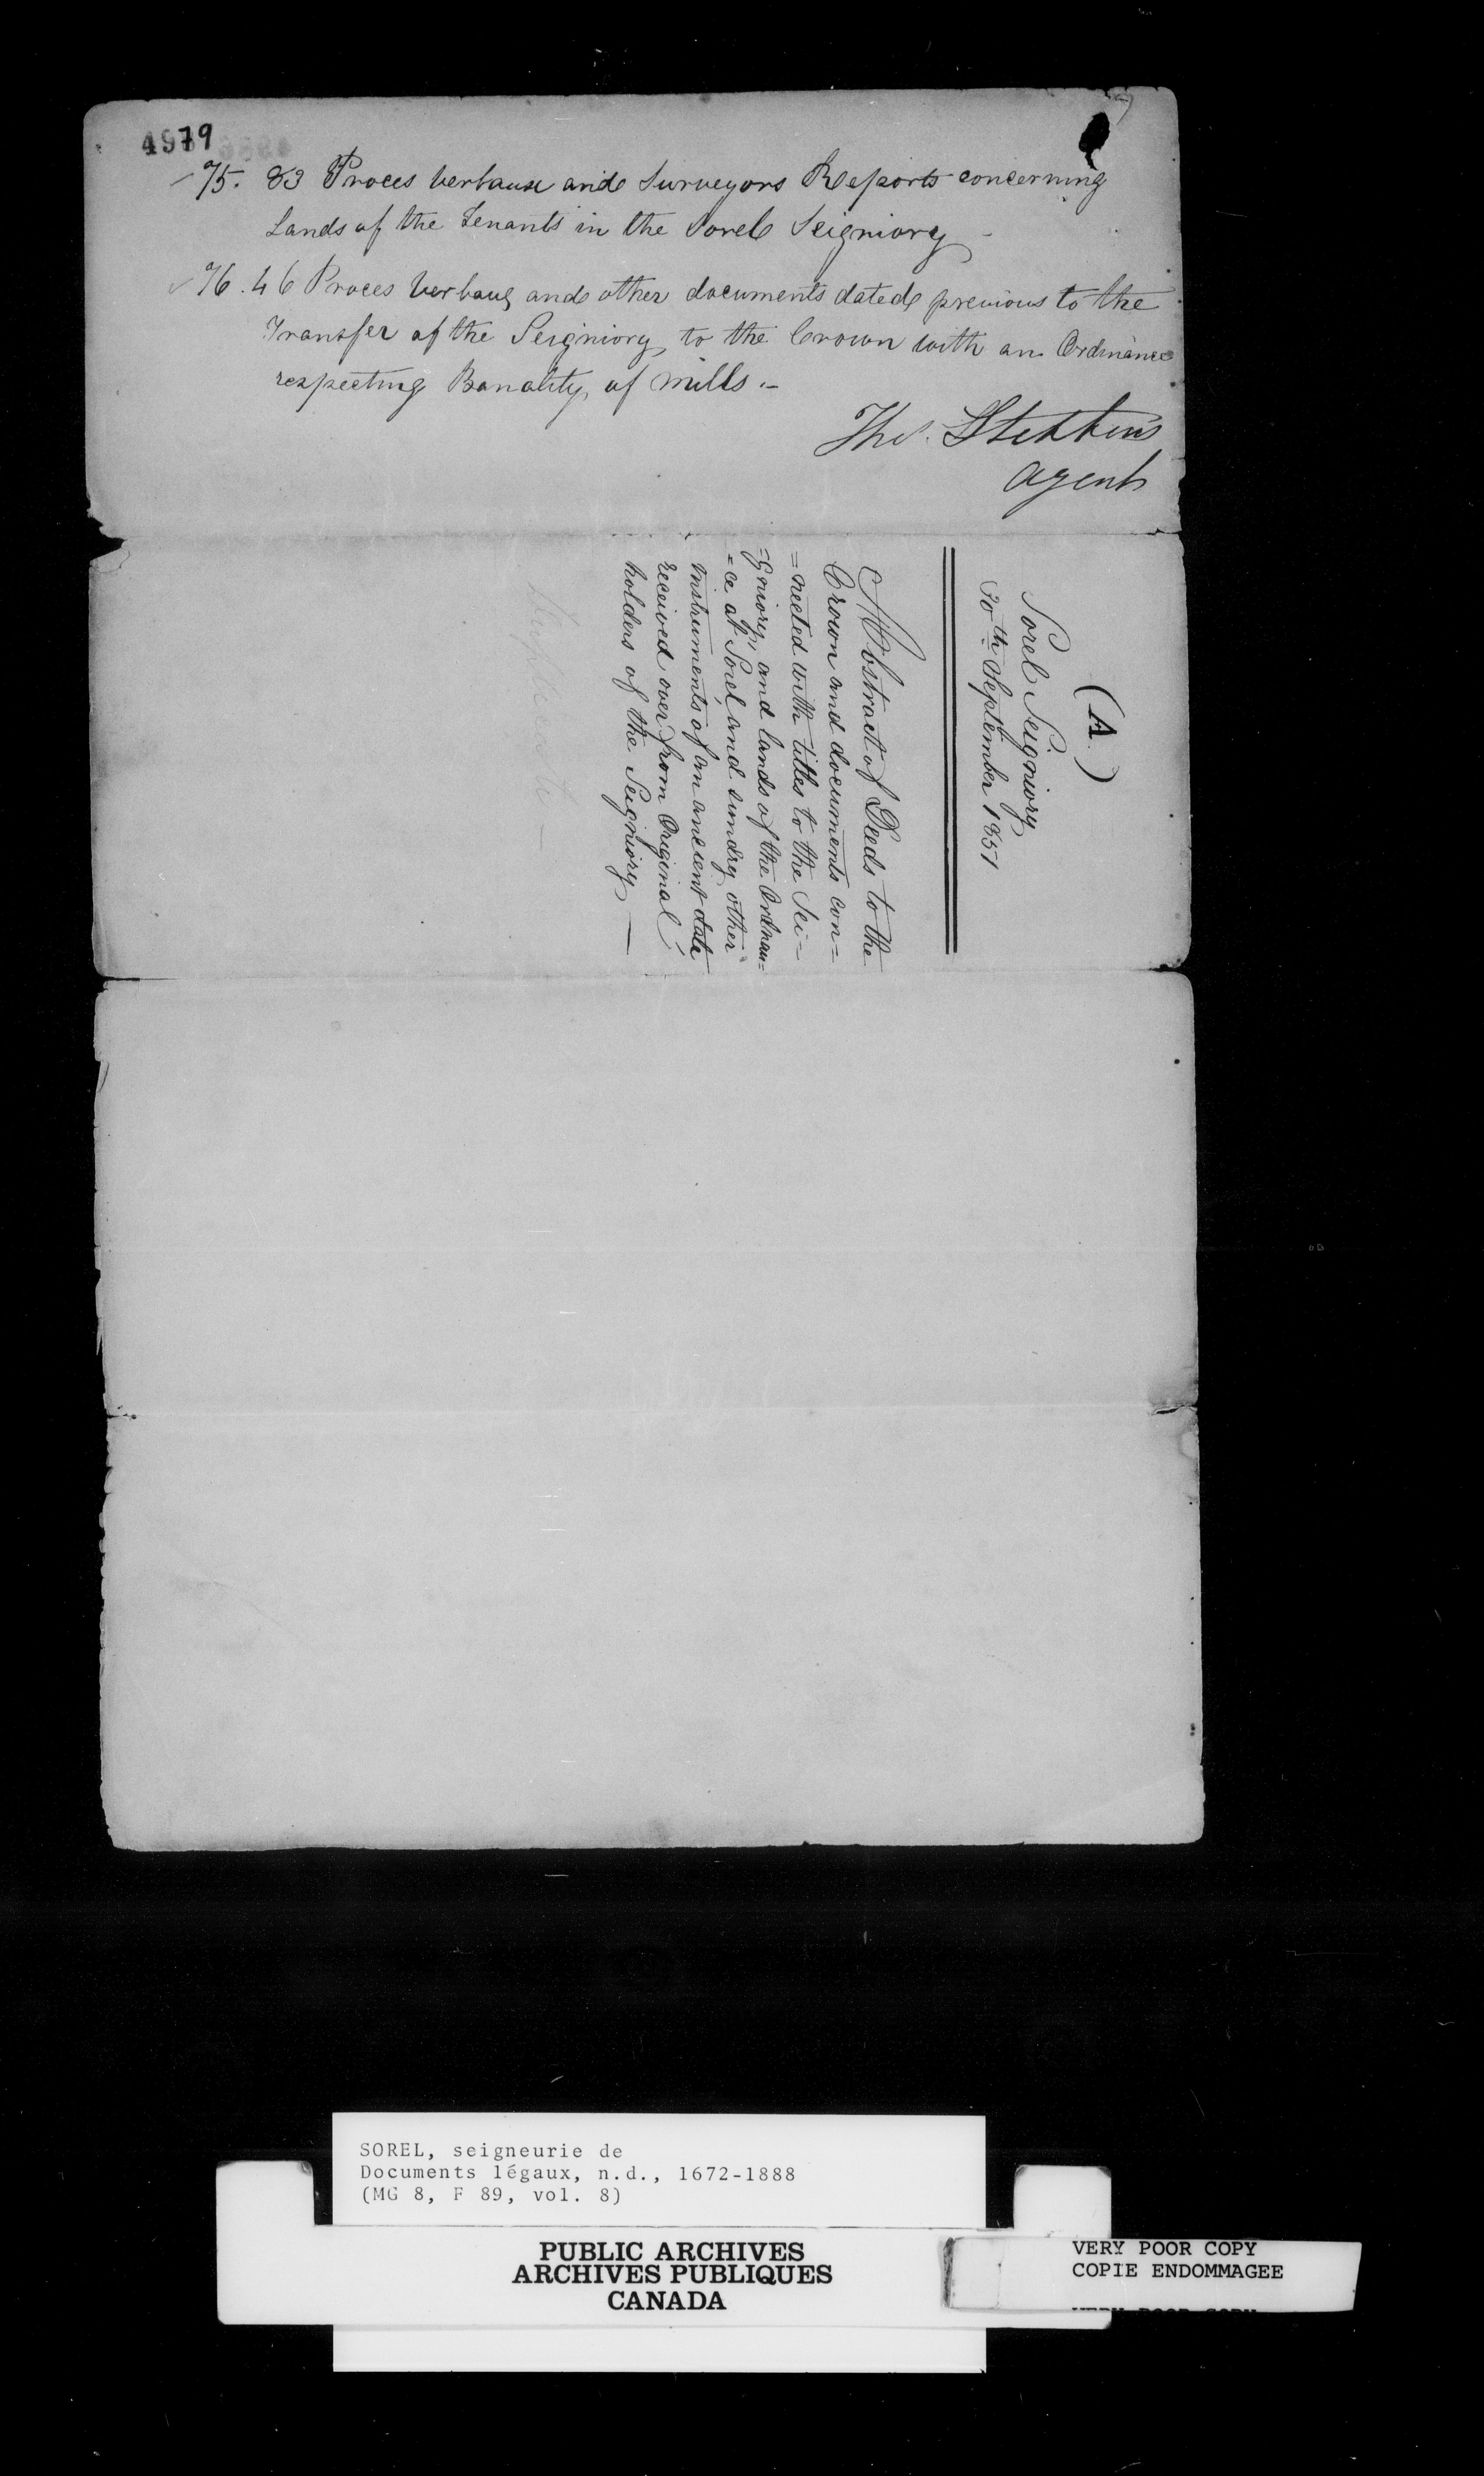 4979
75. 83 Proces verbaux and Surveyors Reports concerning
Lands of the Tenants in the Sorel Seigniory -
76. 46 Proces Verbaux and other documents dated previous to the
Transfer of the Seigniory to the Crown with an Ordinance
respecting Banality of Mills.-
Agent
(A.)
Sorel Seigniory
30th September 1851
Abstract of Deeds to the
Crown and documents con=
=nected with titles to the Sei=
=gniory, and lands of the Ordnan=
=ce at Sorel, and sundry other
instruments of an ancient date
received over from Original
holders of the Seigniory —
Duplicate —
SOREL, seigneurie de
Documents légaux, n.d., 1672-1888
(MG 8, F 89, vol. 8)
PUBLIC ARCHIVES
ARCHIVES PUBLIQUES
CANADA
VERY POOR COPY
COPIE ENDOMMAGEE
VERY POOR COPY